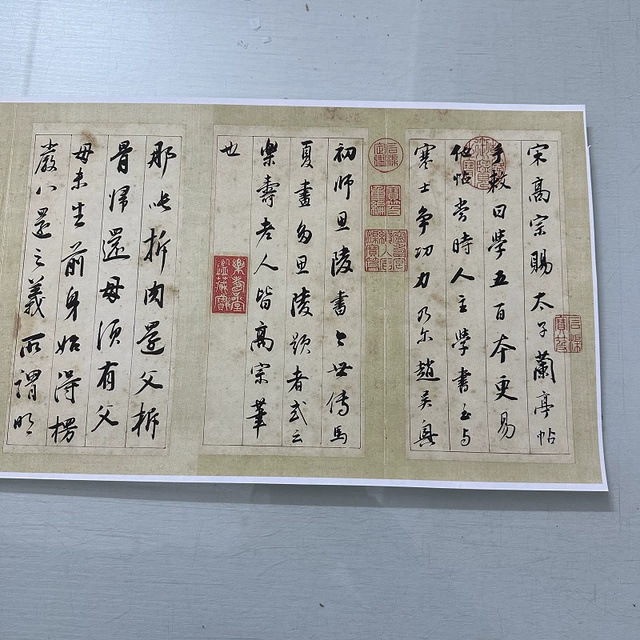 宋高宗賜太子蘭亭帖
手敕曰學五百本更易
他帖當時人主學書至与
寒士爭功力乃尔趙吳興
初師思陵書今世傳馬
夏畫多思陵題者或云
樂壽老人皆高宗筆
也
樂壽堂鑑藏寶
那吒拆肉還父拆
骨歸還母須有父
母未生前身始得楞
嚴八還之義所謂明